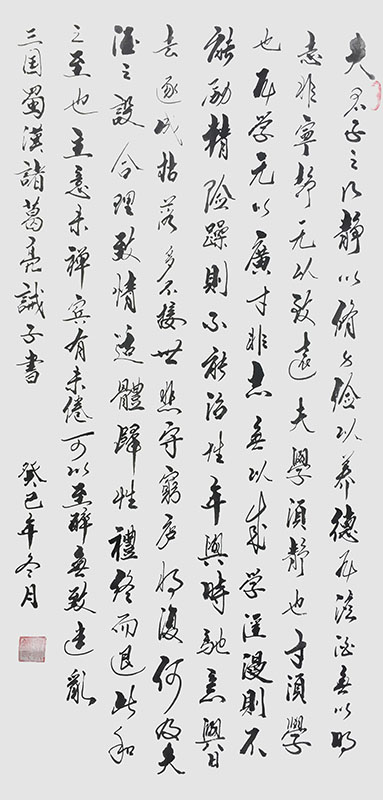 夫君子之行靜以脩身儉以養德非淡泊無以明
志非寧靜无以致遠夫學須靜也才須學
也非学无以廣才非志無以成学淫漫則不
能励精险躁則不能治性年與時馳意與日
去遂成枯落多不接世悲守窮庐将復何及夫
酒之設合理致情适體歸性禮終而退此和
之至也主意未禅賓有未倦可以至醉無致迷亂
三国蜀漢諸葛亮誡子書
癸巳年冬月